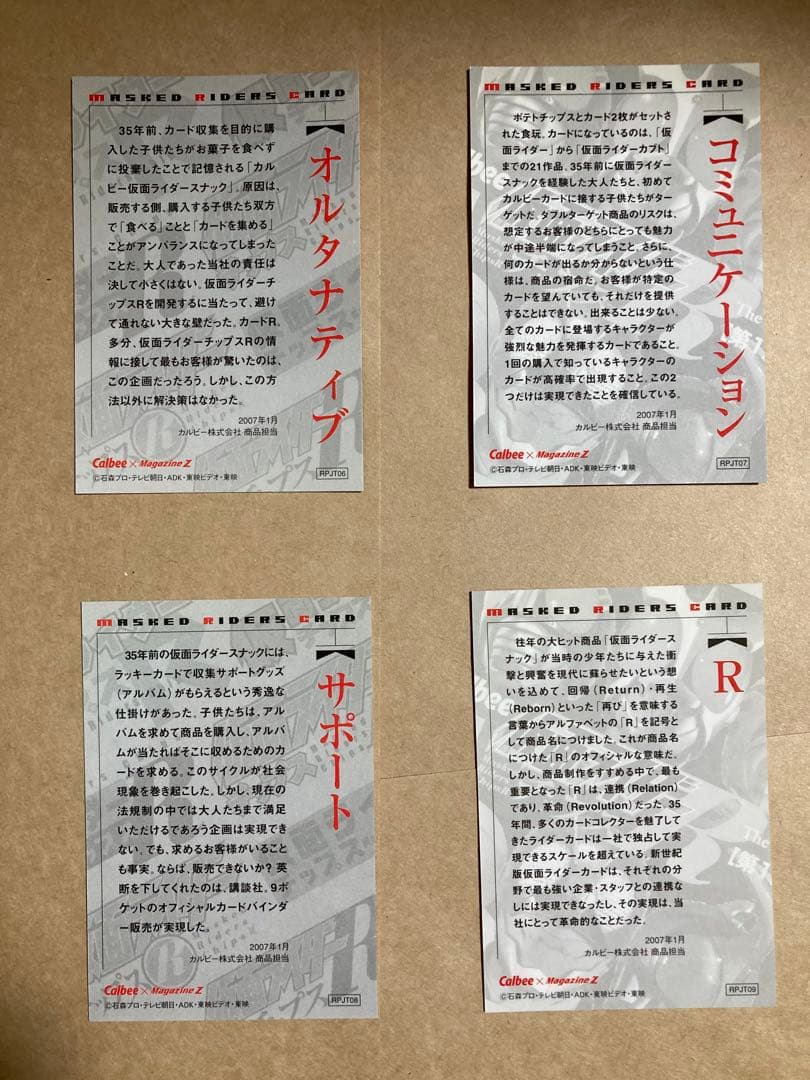 MASKED RIDERS CARD
オルタナティブ
35年前、カード収集を目的に購
入した子供たちがお菓子を食べず
に投棄したことで記憶される「カル
ビー仮面ライダースナック」。原因は、
販売する側、購入する子供たち双方
で「食べる」ことと「カードを集める」
ことがアンバランスになってしまった
ことだ。大人であった当社の責任は
決して小さくはない。仮面ライダーチ
ップスRを開発するに当たって、避け
て通れない大きな壁だった。カードR。
多分、仮面ライダーチップスRの情
報に接して最もお客様が驚いたのは、
この企画だったろう。しかし、この方
法以外に解決策はなかった。
2007年1月
カルビー株式会社 商品担当
Calbee × Magazine Z
RPJT06
©石森プロ・テレビ朝日・ADK・東映ビデオ・東映
MASKED RIDERS CARD
コミュニケーション
ポテトチップスとカード2枚がセットさ
れた食玩。カードになっているのは、「仮
面ライダー」から「仮面ライダーカブト」
までの21作品。35年前に仮面ライダー
スナックを経験した大人たちと、初めて
カルビーカードに接する子供たちがター
ゲットだ。ダブルターゲット商品のリスクは、
想定するお客様のどちらにとっても魅力
が中途半端になってしまうこと。さらに、
何のカードが出るか分からないという仕
様は、商品の宿命だ。お客様が特定の
カードを望んでいても、それだけを提供
することはできない。出来ることは少ない。
全てのカードに登場するキャラクターが
強烈な魅力を発揮するカードであること。
1回の購入で知っているキャラクターの
カードが高確率で出現すること。この2
つだけは実現できたことを確信している。
2007年1月
カルビー株式会社 商品担当
Calbee × Magazine Z
RPJT07
©石森プロ・テレビ朝日・ADK・東映ビデオ・東映
MASKED RIDERS CARD
サポート
35年前の仮面ライダースナックには、
ラッキーカードで収集サポートグッズ
(アルバム)がもらえるという秀逸な
仕掛けがあった。子供たちは、アル
バムを求めて商品を購入し、アルバ
ムが当たればそこに収めるためのカ
ードを求める。このサイクルが社会
現象を巻き起こした。しかし、現在の
法規制の中では大人たちまで満足
いただけるであろう企画は実現でき
ない。でも、求めるお客様がいること
も事実。ならば、販売できないか?英
断を下してくれたのは、講談社。9ポ
ケットのオフィシャルカードバインダ
ー販売が実現した。
2007年1月
カルビー株式会社 商品担当
Calbee × Magazine Z
RPJT08
©石森プロ・テレビ朝日・ADK・東映ビデオ・東映
MASKED RIDERS CARD
R
往年の大ヒット商品「仮面ライダース
ナック」が当時の少年たちに与えた衝
撃と興奮を現代に蘇らせたいという想
いを込めて、回帰(Return)・再生
(Reborn)といった「再び」を意味する
言葉からアルファベットの「R」を記号と
して商品名につけました。これが商品名
につけた「R」のオフィシャルな意味だ。
しかし、商品制作をすすめる中で、最も
重要となった「R」は、連携(Relation)
であり、革命(Revolution)だった。35
年間、多くのカードコレクターを魅了して
きたライダーカードは一社で独占して実
現できるスケールを超えている。新世紀
版仮面ライダーカードは、それぞれの分
野で最も強い企業・スタッフとの連携な
しには実現できなかったし、その実現は、当
社にとって革命的なことだった。
2007年1月
カルビー株式会社 商品担当
Calbee × Magazine Z
RPJT09
©石森プロ・テレビ朝日・ADK・東映ビデオ・東映